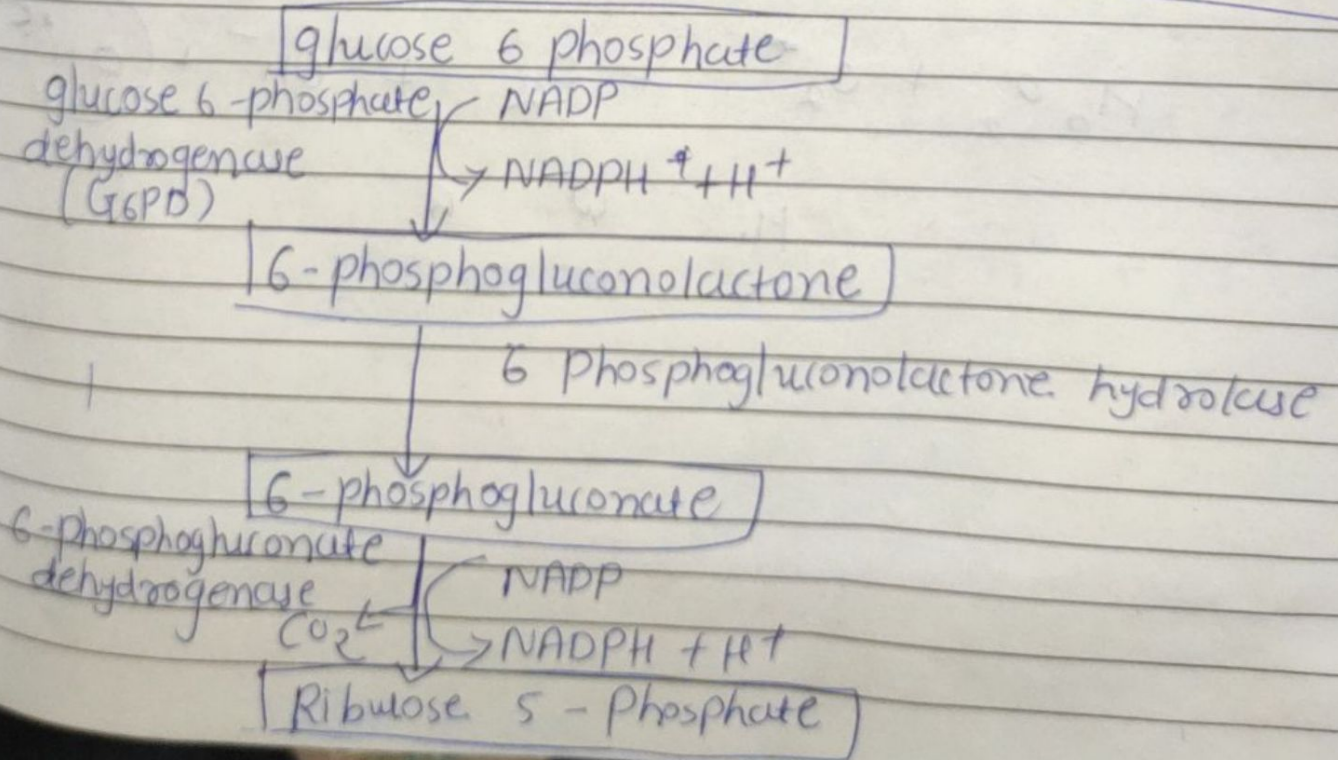 glucose 6 phosphate
glucose 6-phosphate NADP
dehydrogenase NADPH + + H+
(G6PD)
6-phosphogluconolactone
6 Phosphogluconolactone hydrolase
6-phosphogluconate
6-Phosphogluconate
dehydrogenase NADP
CO2 NADPH + H+
Ribulose 5 - Phosphate